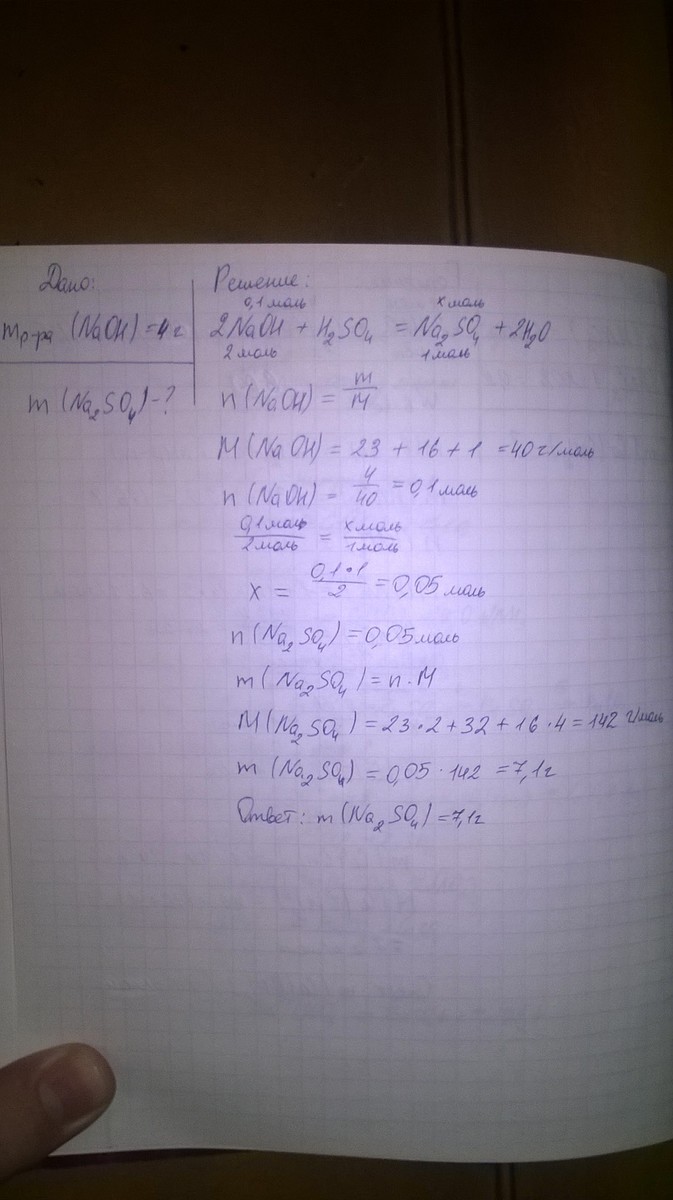 Дано:
m р-ра (NaOH) = 4 г
m (Na₂SO₄) - ?
Решение:
0,1 моль x моль
2NaOH + H₂SO₄ = Na₂SO₄ + 2H₂O
2 моль 1 моль
n (NaOH) = m/M
M (NaOH) = 23 + 16 + 1 = 40 г/моль
n (NaOH) = 4/40 = 0,1 моль
0,1 моль/2 моль = x моль/1 моль
x = 0,1•1/2 = 0,05 моль
n (Na₂SO₄) = 0,05 моль
m (Na₂SO₄) = n · M
M (Na₂SO₄) = 23·2 + 32 + 16·4 = 142 г/моль
m (Na₂SO₄) = 0,05 · 142 = 7,1 г
Ответ: m (Na₂SO₄) = 7,1 г